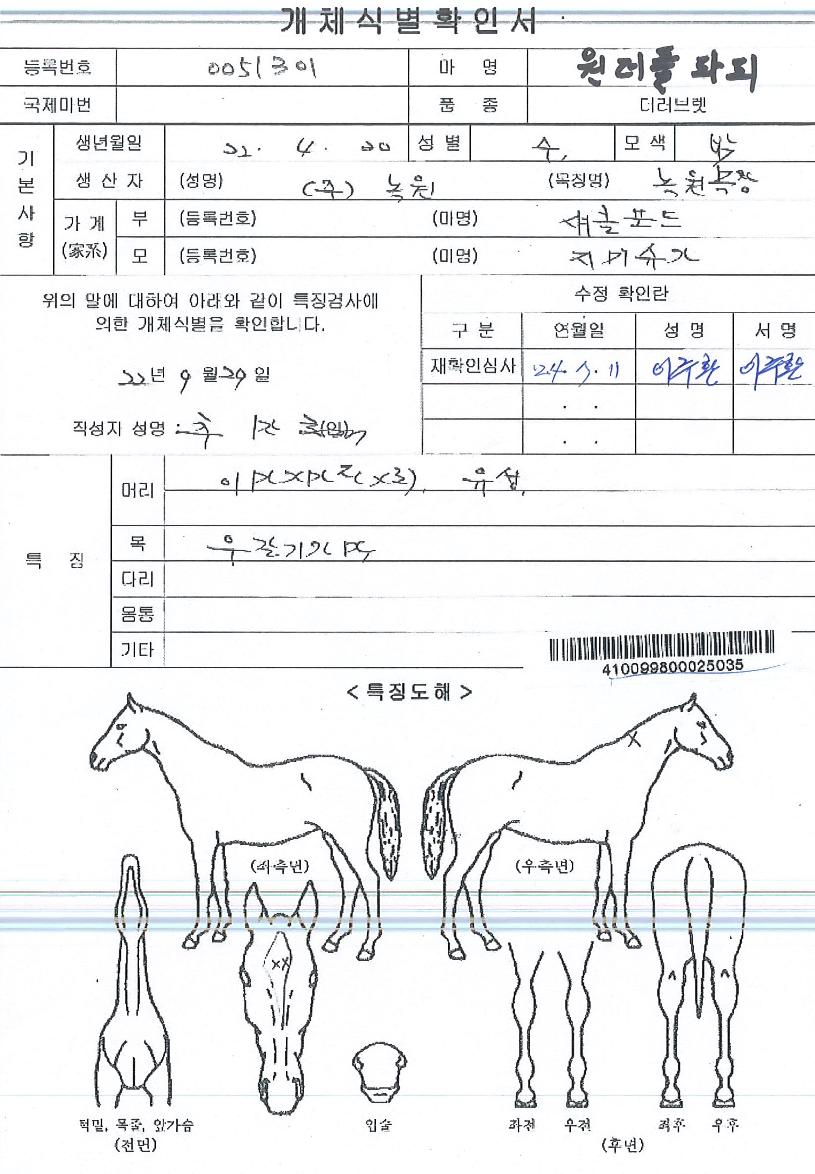 개체식별확인서
등록번호 0051301 마 명 원더풀파피
국제마번 품 종 더러브렛
기본사항
생년월일 22. 4. 20 성 별 수 모 색 밤
생 산 자 (성명) (주) 녹원 (목장명) 녹원목장
가 계 (家系) 부 (등록번호) (마명) 섀클포드
모 (등록번호) (마명)
위의 말에 대하여 아래와 같이 특징검사에
의한 개체식별을 확인합니다.
22년 9 월 29 일
작성자 성명 (인)
수정 확인란
구 분 연월일 성 명 서 명
재확인심사 이주환 이주환
특 징
머리 유성
목
다리
몸통
기타
410099800025035
< 특징도해 >
(좌측면) (우측면)
X
XX
턱밑, 목줄, 앞가슴 입술 좌전 우전 좌후 우후
(전면) (후면)